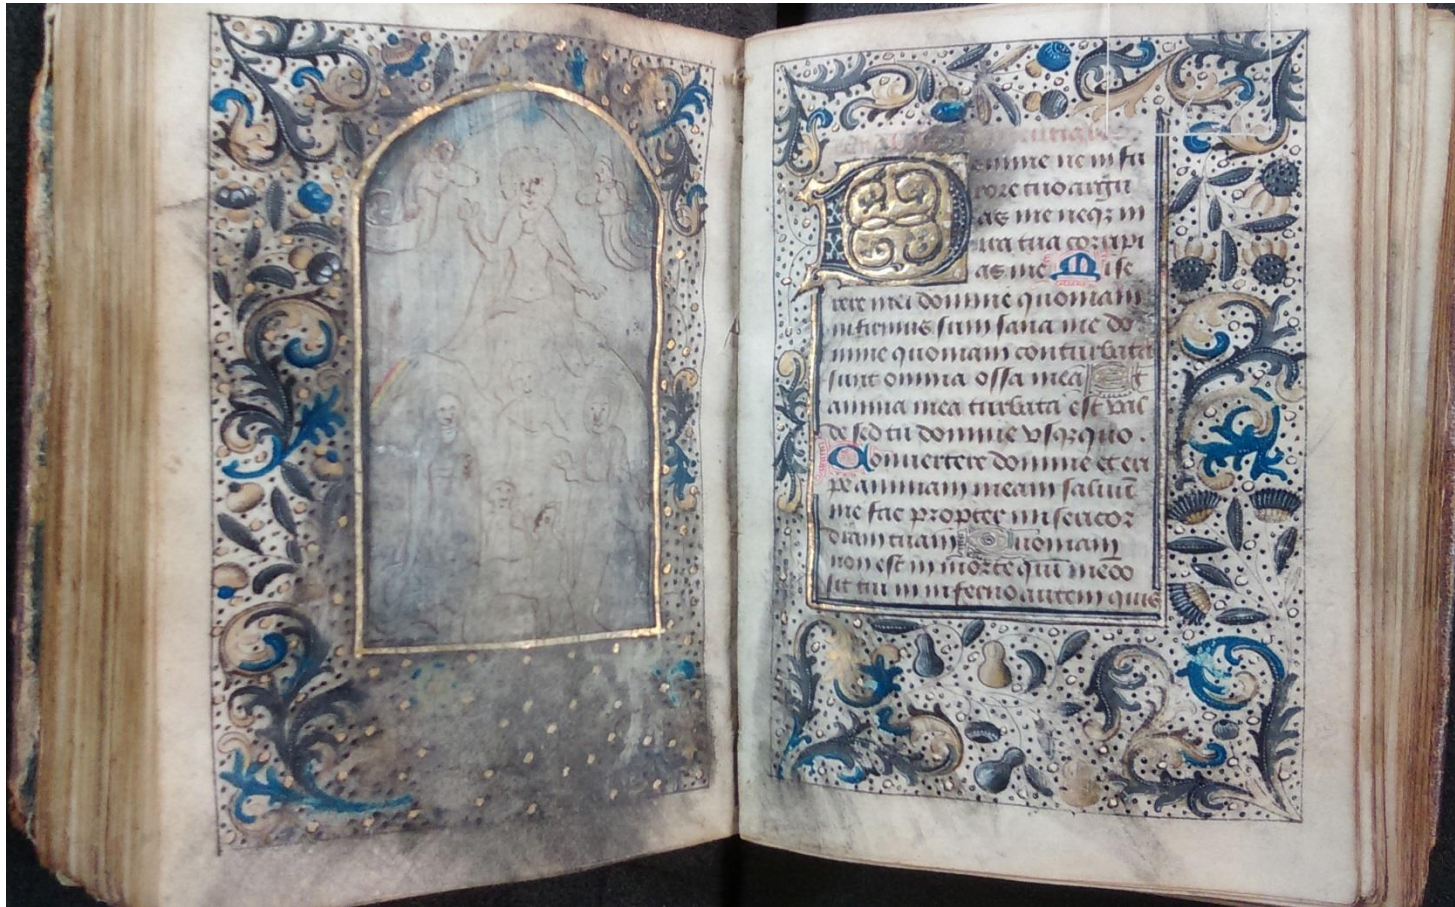 omine ne in fu
rore tuo argu
as me neq3 in
ira tua corripi
as me Mise
rere mei domine quoniam
infirmus sum sana me do
mine quoniam conturbata
sunt omnia ossa mea Et
anima mea turbata est val
de sed tu domine vsq3quo.
Conuertere domine et eri
pe animam meam saluū
me fac propter misericor
diam tuam Quoniam
non est in morte qui meō
sit tui in inferno autem quis